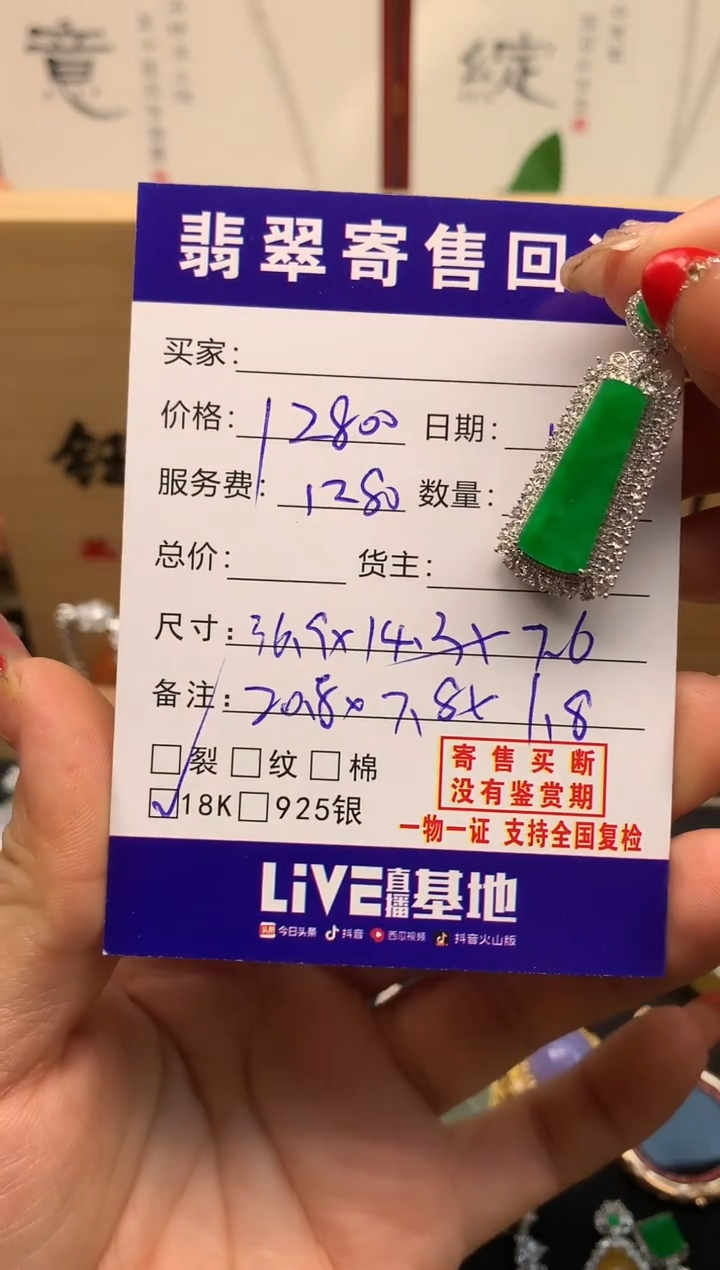 意
綻
翡翠寄售回
买家:
价格: 12800 日期:
服务费: 1280 数量:
总价: 货主:
尺寸: 36.9x14.3x7.6
备注: 20.8x7.8x1.8
裂 纹 棉
18K 925银
寄售买断
没有鉴赏期
一物一证 支持全国复检
LiVE直播基地
头条 今日头条 抖音 西瓜视频 抖音火山版